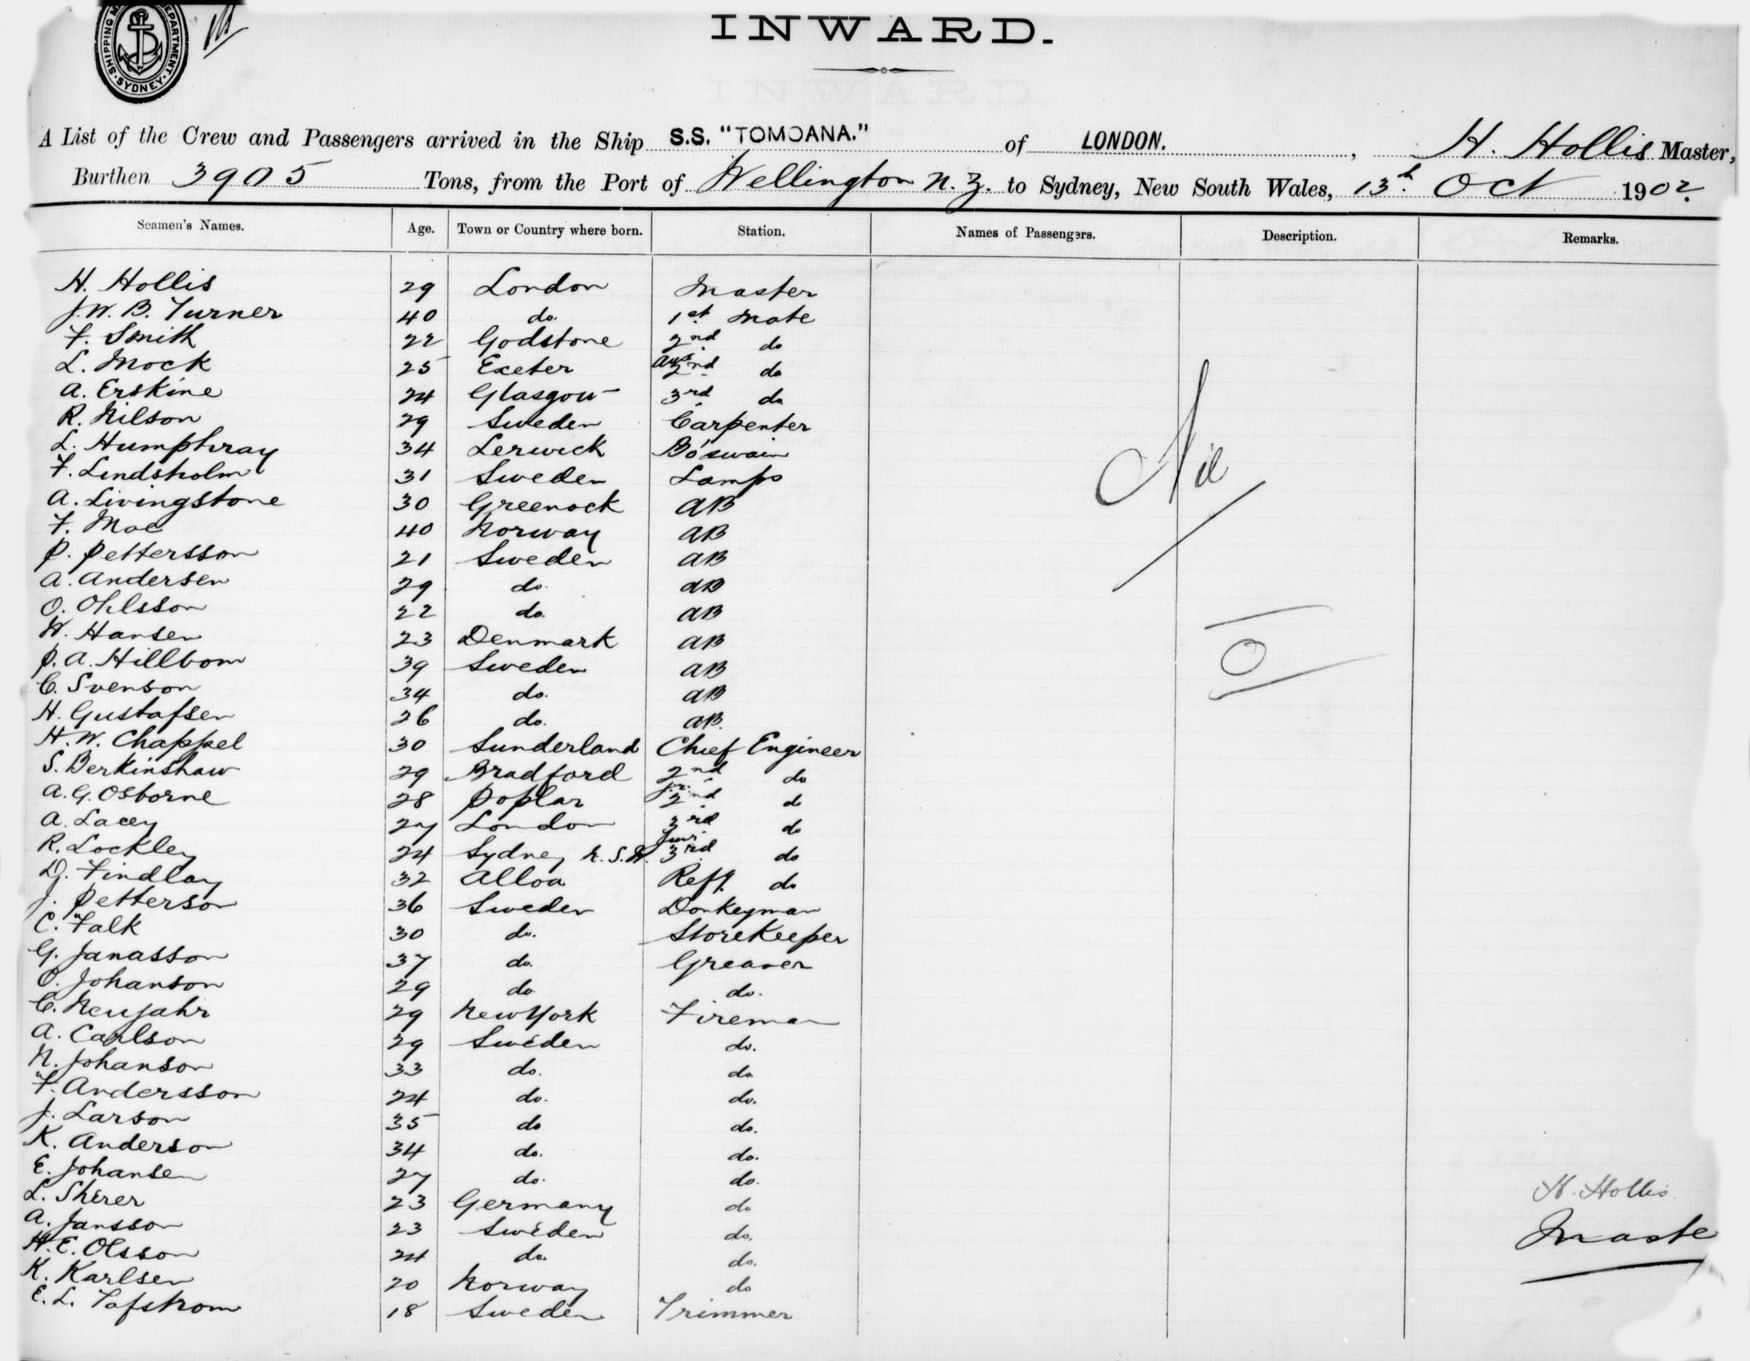 SHIPPING M DEPARTMENT SYDNEY
INWARD.
A List of the Crew and Passengers arrived in the Ship S.S. "TOMOANA." of LONDON. , H. Hollis Master,
Burthen 3905 Tons, from the Port of Wellington N.Z. to Sydney, New South Wales, 13th Oct 1902.
Seamen's Names. Age. Town or Country where born. Station. Names of Passengers. Description. Remarks.
H. Hollis 29 London Master
J.W.B. Turner 40 do. 1st Mate
F. Smith 22 Godstone 2nd do
L. Mock 25 Exeter Aux 2nd do
A. Erskine 24 Glasgow 3rd do
R. Nilson 29 Sweden Carpenter
L. Humphray 34 Lerwick Bo'swain
F. Lindsholm 31 Sweden Lamps
A. Livingstone 30 Greenock AB
F. Moe 40 Norway AB
P. Pettersson 21 Sweden AB
A. Andersen 29 do. AB
O. Ohlsson 22 do. AB
W. Hansen 23 Denmark AB
P.A. Hillbom 39 Sweden AB
C. Svenson 34 do. AB
H. Gustafsen 26 do. AB.
H.W. Chappel 30 Sunderland Chief Engineer
S. Berkinshaw 29 Bradford 2nd do
A.G. Osborne 28 Poplar Jr. 2nd do
A. Lacey 27 London 3rd do
R. Lockley 24 Sydney N.S.W. Junr 3rd do
D. Findlay 32 Alloa Refg. do
J. Petterson 36 Sweden Donkeyman
C. Falk 30 do. Storekeeper
G. Janasson 37 do. Greaser
O. Johanson 29 do do.
C. Neujahr 29 New York Fireman
A. Carlson 29 Sweden do.
N. Johanson 33 do. do
F. Andersson 24 do. do.
J. Larson 35 do do.
K. Anderson 34 do. do.
E. Johansen 27 do. do.
L. Sherer 23 Germany do
A. Jansson 23 Sweden do.
H.E. Olsson 24 do. do.
K. Karlsen 20 Norway do
E.L. Tofstrom 18 Sweden Trimmer
Nil
O
H. Hollis
Master